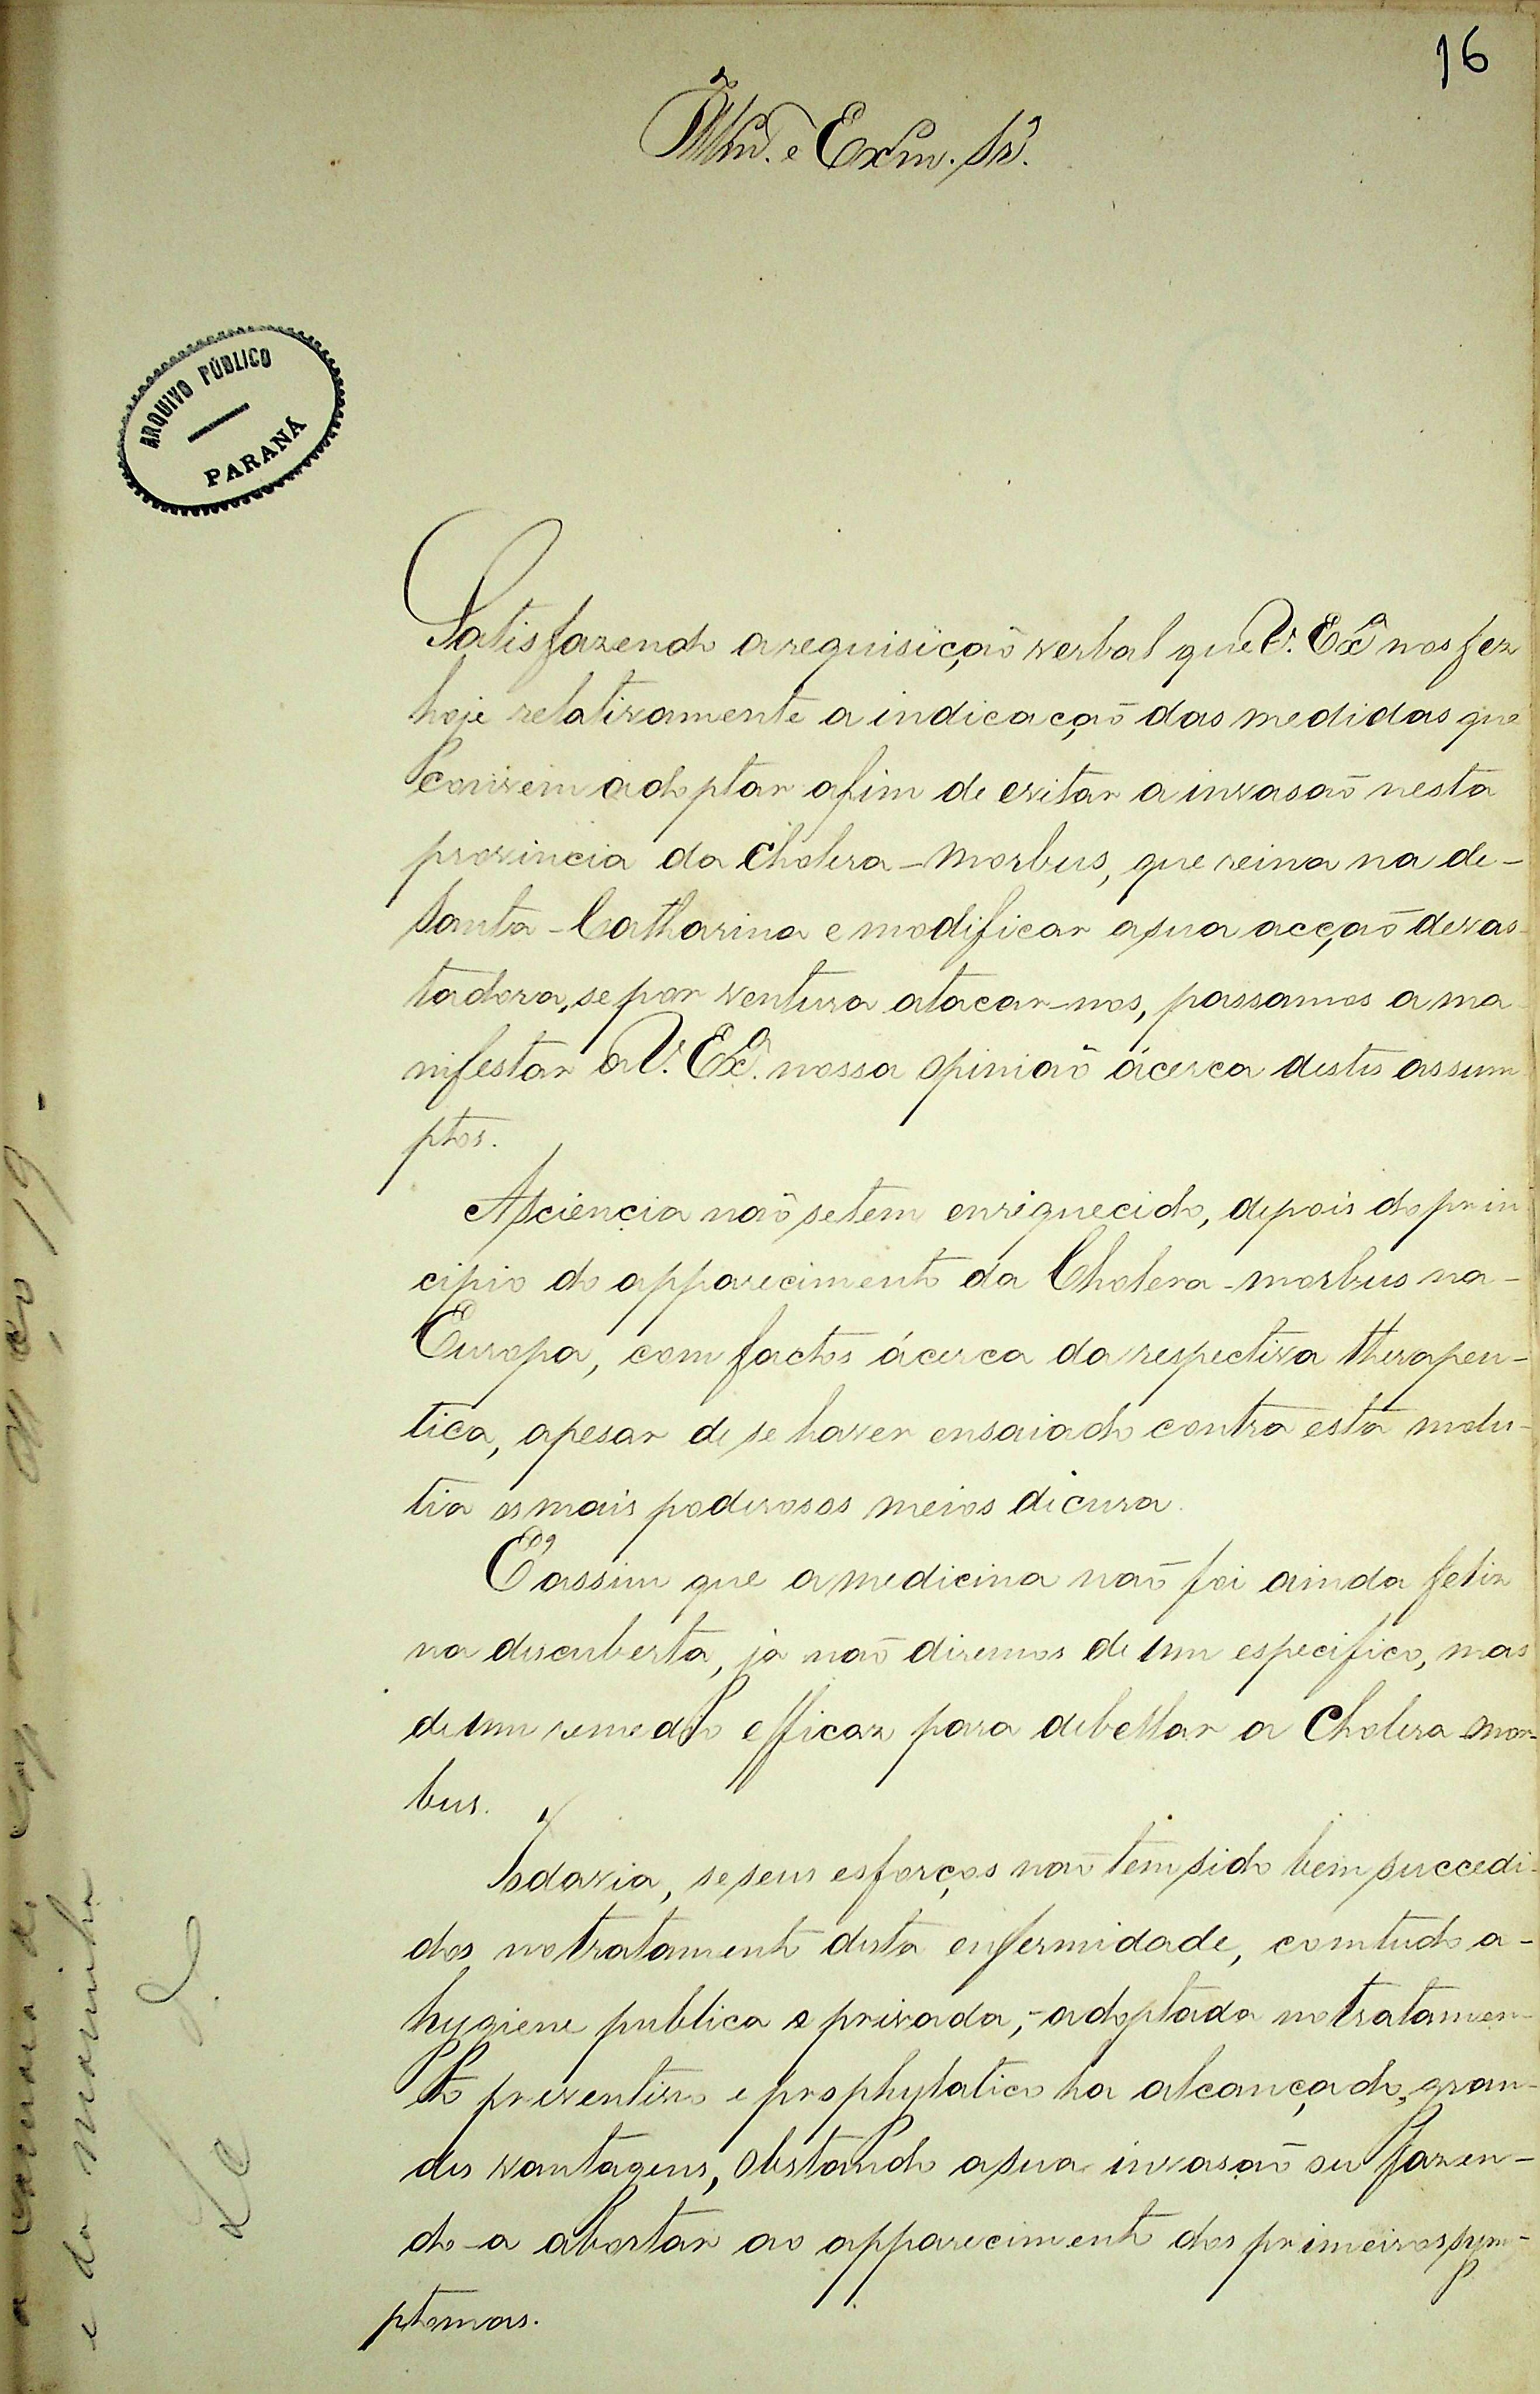 16
Illm. e Exm. Sr.
ARQUIVO PÚBLICO
PARANÁ
Satisfazendo a requisição verbal que V. Exª nos fez
hoje relativamente a indicação das medidas que
convem adoptar afim de evitar a invasão nesta
provincia da Cholera-Morbus, que reina na de-
Santa-Catharina e modificar a sua acção devas-
tadora, se por ventura atacar-nos, passamos a ma
nifestar a V. Exª. nossa opinião ácerca destes assum
ptos.
A sciencia não se tem enriquecido, depois do prin
cipio do apparecimento da Cholera-morbus na-
Europa, com factos ácerca da respectiva therapeu-
tica, apesar de se haver ensaiado contra esta moles-
tia os mais poderosos meios de cura.
É assim que a medicina não foi ainda feliz
na descuberta, já não diremos de um especifico, mas
de um remedio efficaz para debellar a Cholera-mor-
bus.
Todavia, se seus esforços não tem sido bem succedi-
dos no tratamento desta enfermidade, comtudo a-
hygiene publica e privada, adoptada no tratamen-
to preventivo e prophylatico ha alcançado, gran-
des vantagens, obstando a sua invasão ou fazen-
do-a abortar ao apparecimento dos primeiros sym-
ptomas.
e da marinha